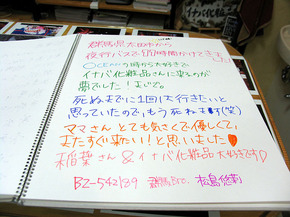 群馬県太田市から
夜行バスで9時間かけてきました
OCEANの時から大好きで
イナバ化粧品さんに来るのが
夢でした!まじで。
死ぬまでに1回は行きたいと
思っていたので、もう死ねます(笑)
ママさんとても気さくで優しくて、
またすぐ来たい!と思いました
稲葉さん&イナバ化粧品大好きです♡
BZ-542189 群馬から 松島悠莉
イナバ化粧品